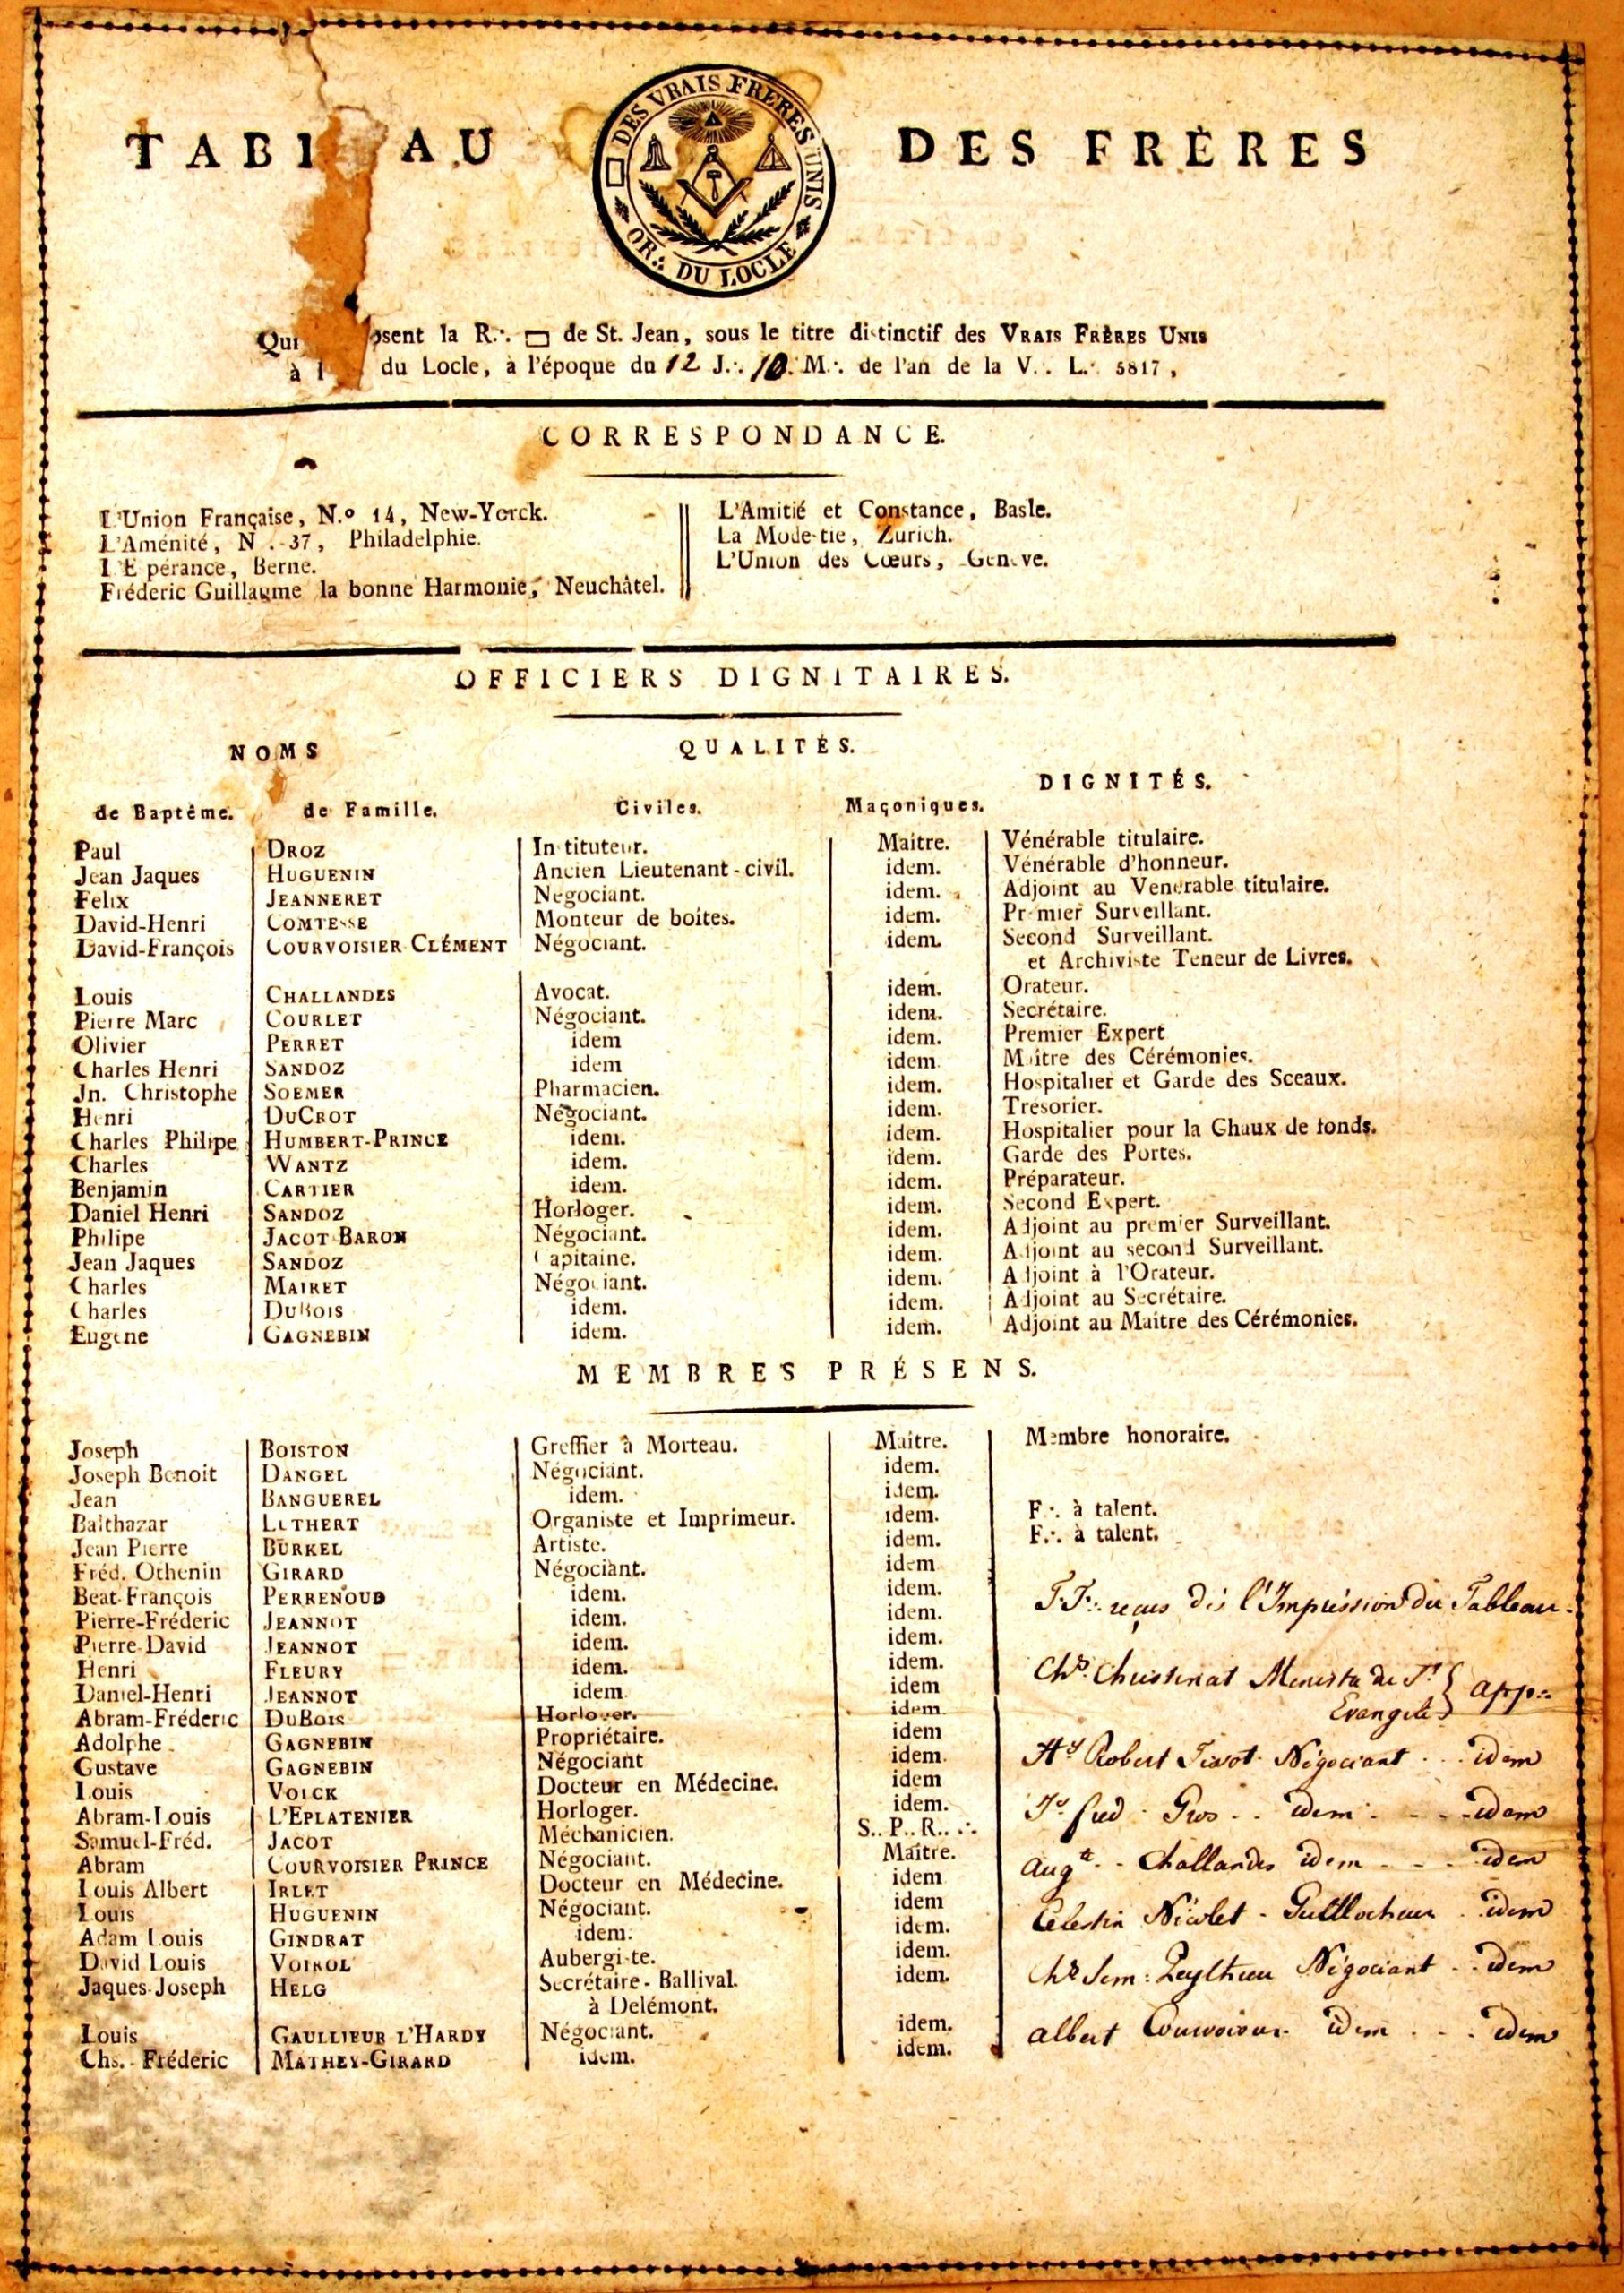 TABL AU DES FRÈRES
DES VRAIS FRERES UNIS
OR∴ DU LOCLE
Qui osent la R∴ ▭ de St. Jean, sous le titre distinctif des VRAIS FRÈRES UNIS
à l du Locle, à l'époque du 12 J∴ 10 M∴ de l'an de la V∴ L∴ 5817,
CORRESPONDANCE.
L'Union Française, N.º 14, New-Yorck.
L'Aménité, N. 37, Philadelphie.
L'Espérance, Berne.
Fréderic Guillaume la bonne Harmonie, Neuchâtel.
L'Amitié et Constance, Basle.
La Modestie, Zurich.
L'Union des Cœurs, Genève.
OFFICIERS DIGNITAIRES.
NOMS QUALITÉS. DIGNITÉS.
de Baptême. de Famille. Civiles. Maçoniques.
Paul DROZ Instituteur. Maitre. Vénérable titulaire.
Jean Jaques HUGUENIN Ancien Lieutenant-civil. idem. Vénérable d'honneur.
Felix JEANNERET Negociant. idem. Adjoint au Venérable titulaire.
David-Henri COMTESSE Monteur de boites. idem. Premier Surveillant.
David-François COURVOISIER CLÉMENT Négociant. idem. Second Surveillant.
et Archiviste Teneur de Livres.
Louis CHALLANDES Avocat. idem. Orateur.
Pierre Marc COURLET Négociant. idem. Secrétaire.
Olivier PERRET idem idem. Premier Expert
Charles Henri SANDOZ idem idem. Maître des Cérémonies.
Jn. Christophe SOEMER Pharmacien. idem. Hospitalier et Garde des Sceaux.
Henri DUCROT Négociant. idem. Tresorier.
Charles Philipe HUMBERT-PRINCE idem. idem. Hospitalier pour la Chaux de fonds.
Charles WANTZ idem. idem. Garde des Portes.
Benjamin CARTIER idem. idem. Préparateur.
Daniel Henri SANDOZ Horloger. idem. Second Expert.
Philipe JACOT BARON Négociant. idem. Adjoint au premier Surveillant.
Jean Jaques SANDOZ Capitaine. idem. Adjoint au second Surveillant.
Charles MAIRET Négociant. idem. Adjoint à l'Orateur.
Charles DUBOIS idem. idem. Adjoint au Secrétaire.
Eugene GAGNEBIN idem. idem. Adjoint au Maitre des Cérémonies.
MEMBRES PRÉSENS.
Joseph BOISTON Greffier à Morteau. Maitre. Membre honoraire.
Joseph Benoit DANGEL Négociant. idem.
Jean BANGUEREL idem. idem.
Balthazar LUTHERT Organiste et Imprimeur. idem. F∴ à talent.
Jean Pierre BURKEL Artiste. idem. F∴ à talent.
Fréd. Othenin GIRARD Négociant. idem
Beat-François PERRENOUD idem. idem.
Pierre-Fréderic JEANNOT idem. idem.
Pierre-David JEANNOT idem. idem.
Henri FLEURY idem. idem.
Daniel-Henri JEANNOT idem. idem
Abram-Fréderic DUBOIS Horloger. idem.
Adolphe GAGNEBIN Propriétaire. idem
Gustave GAGNEBIN Négociant idem.
Louis VOLCK Docteur en Médecine. idem
Abram-Louis L'EPLATENIER Horloger. idem.
Samuel-Fréd. JACOT Méchanicien. S.. P.. R.. ∴
Abram COURVOISIER PRINCE Négociant. Maitre.
Louis Albert IRLET Docteur en Médecine. idem
Louis HUGUENIN Négociant. idem
Adam Louis GINDRAT idem. idem.
David Louis VOIROL Aubergiste. idem.
Jaques-Joseph HELG Secrétaire-Ballival. idem.
à Delémont.
Louis GAULLIEUR L'HARDY Négociant. idem.
Chs.-Fréderic MATHEY-GIRARD idem. idem.
F.F∴ reçus dès l'Impression du Tableau.
Chs. Christinat Ministre du St
Evangile } app∴
Hy Robert Tissot Négociant .. idem
Fréd. Gros .. idem . . . idem
Augte .. Challandes idem . . . idem
Celestin Nicolet - Guillocheur . idem
Négociant .. idem
Albert Courvoisier idem . . . idem